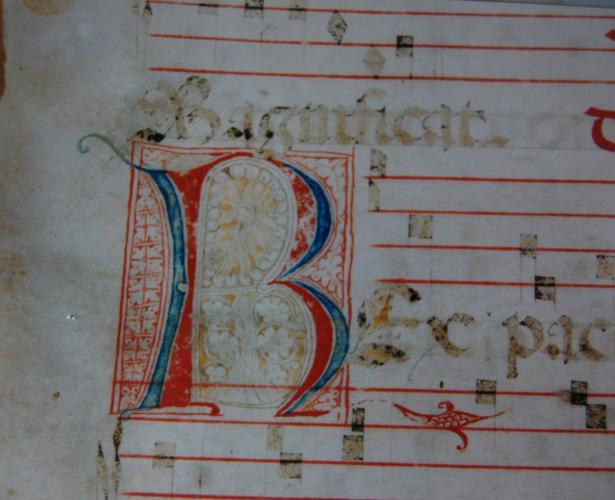 Magnificat.
REx pac